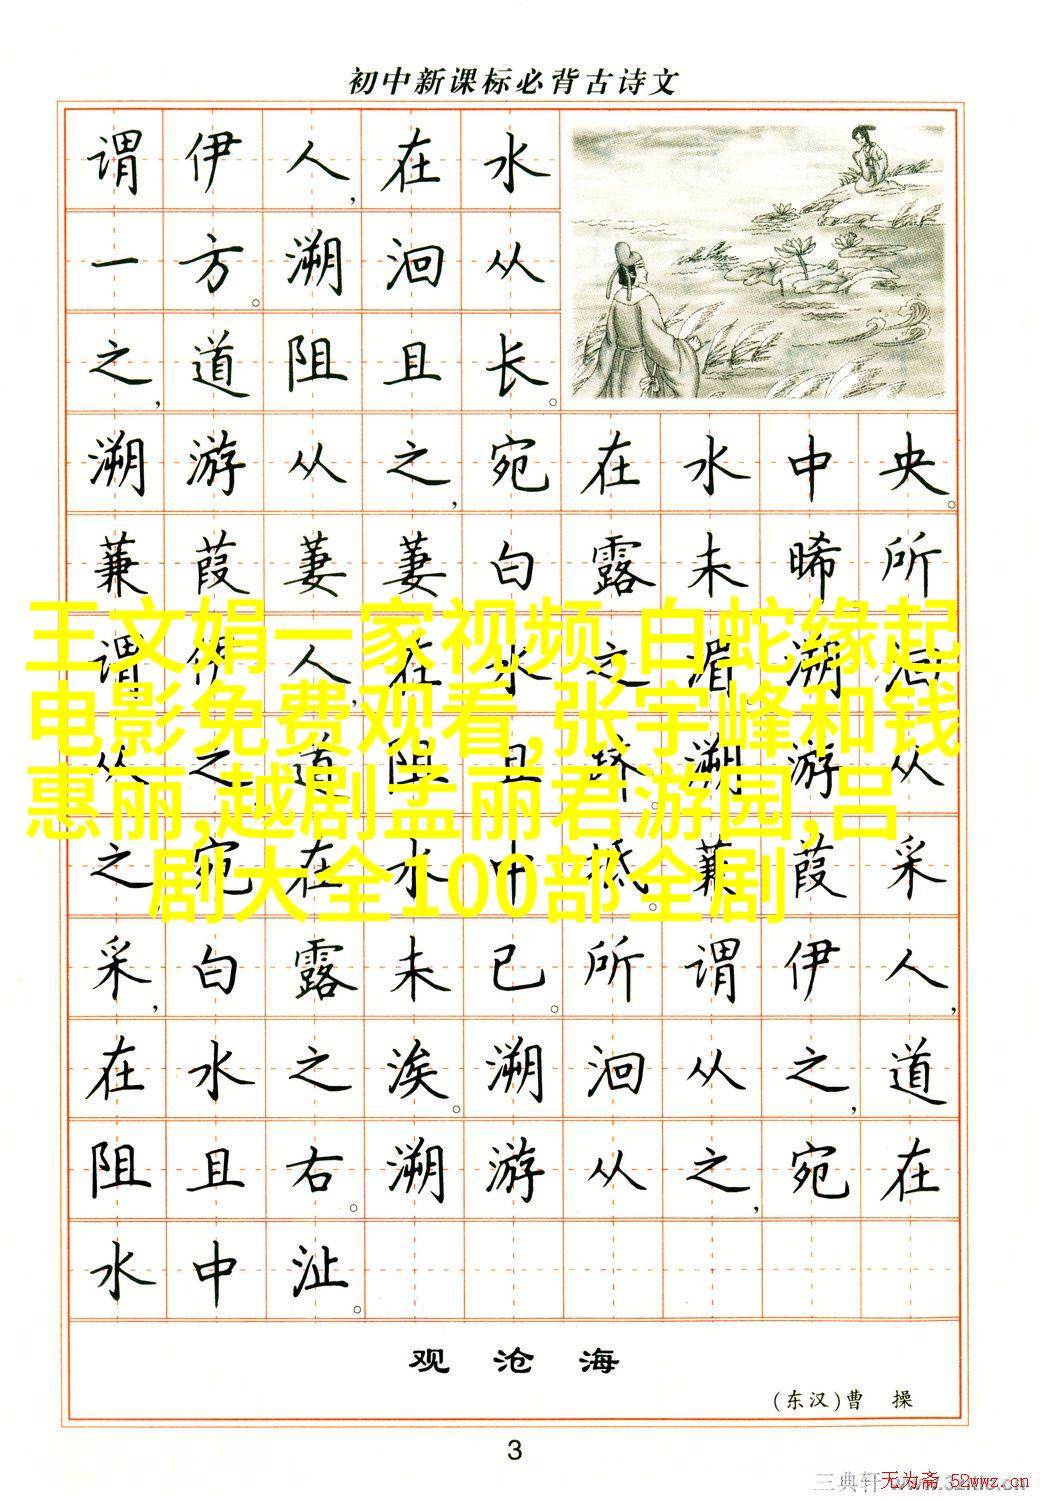 初中新课标必背古诗文
谓伊人，在水
一方。溯洄从
之，道阻且长。
溯游从之，宛在水中央。
蒹葭萋萋白露未晞所
谓伊人，在水之湄。溯洄
从之，道阻且跻。溯游从
之，宛在水中坻。蒹葭采
采，白露未已。所谓伊人，
在水之涘。溯洄从之，道
阻且右。溯游从之，宛在
水中沚。
王文娟一家视频,白蛇缘起
电影免费观看,张宇峰和钱
惠丽,越剧孟丽君游园,吕
剧大全100部全剧
观沧海
(东汉)曹操
3
三典轩
无为斋 52wwz.cn